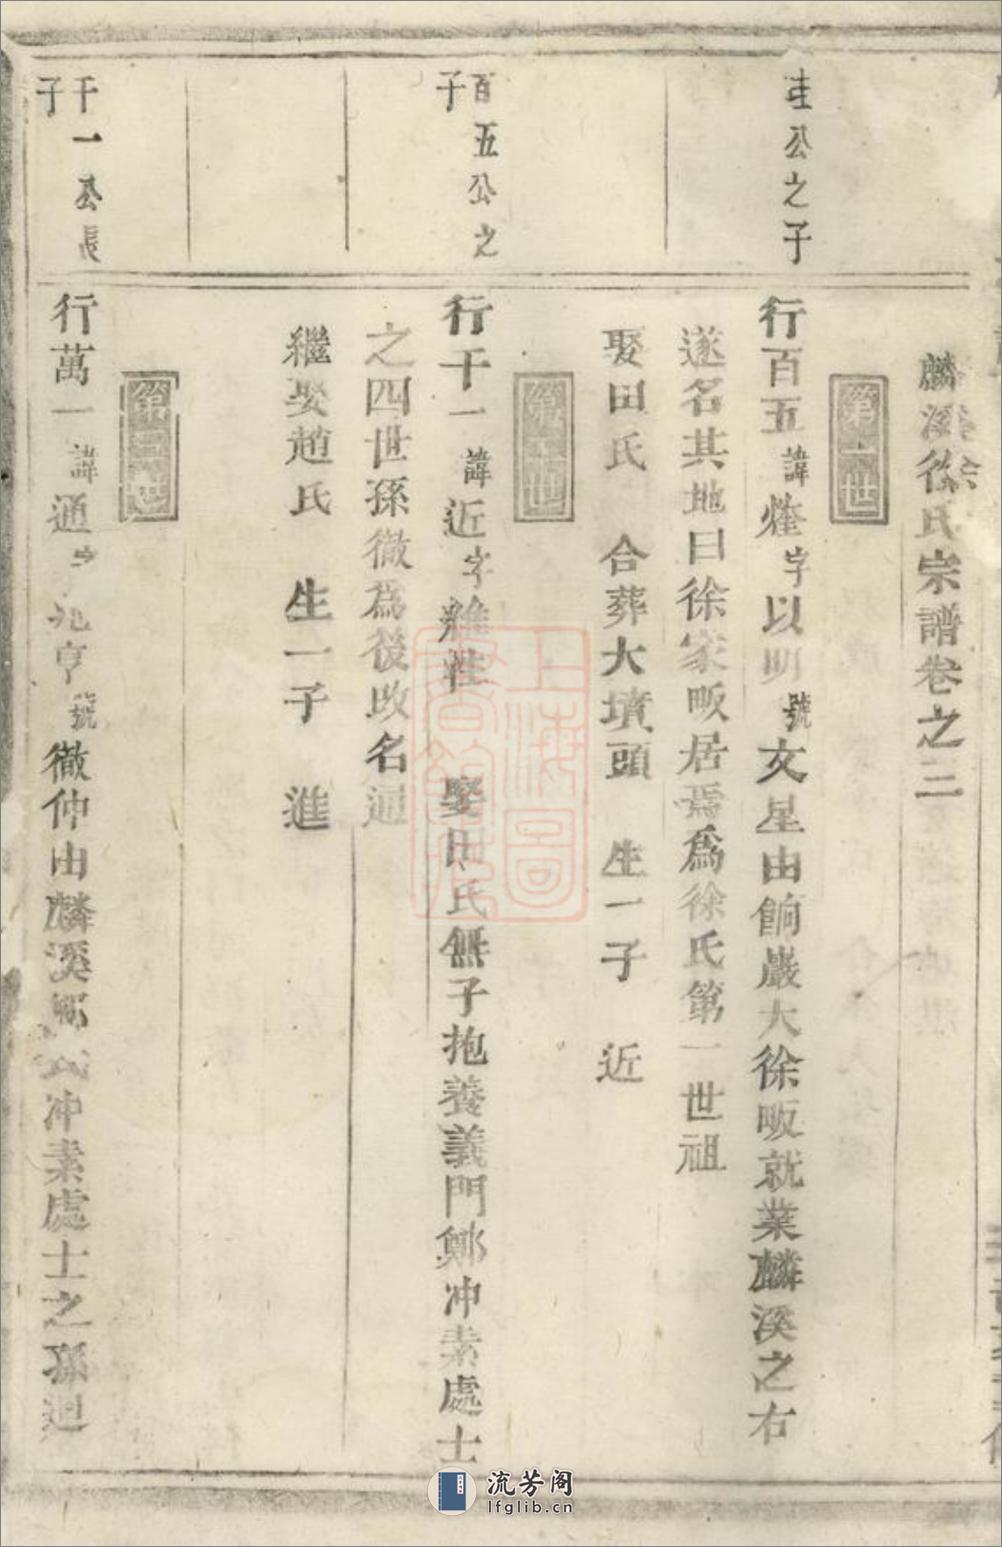 麟溪徐氏宗譜卷之二
第一世
圭公之子
行百五諱燧字以明號文星由餉巖大徐畈就業麟溪之右
遂名其地曰徐家畈居焉爲徐氏第一世祖
娶田氏 合葬大墳頭 生一子 近
第二世
百五公之
子
行千一諱近字 娶田氏無子抱養義門鄭冲素處士
之四世孫徹爲後改名通
繼娶趙氏 生一子 進
第三世
千一公長
子
行萬一諱通字 亨號徹仲由麟溪鄭氏冲素處士之孫迴
上海图書館藏
流芳阁
lfglib.cn